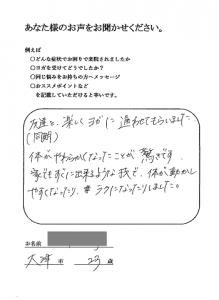 あなた様のお声をお聞かせください。
例えば
○どんな症状でお困りで来院されましたか
○ヨガを受けてどうでしたか？
○同じ悩みをお持ちの方へメッセージ
○おススメポイントなど
を記載していただけると幸いです。
友達と、楽しくヨガに通わせてもらいました
(同期)
体がやわらかくなったことが驚きです。
家でもすぐに出来るような技で、体が動かし
やすくなったり、ラクになったりしました。
お名前
大津 市 23 歳